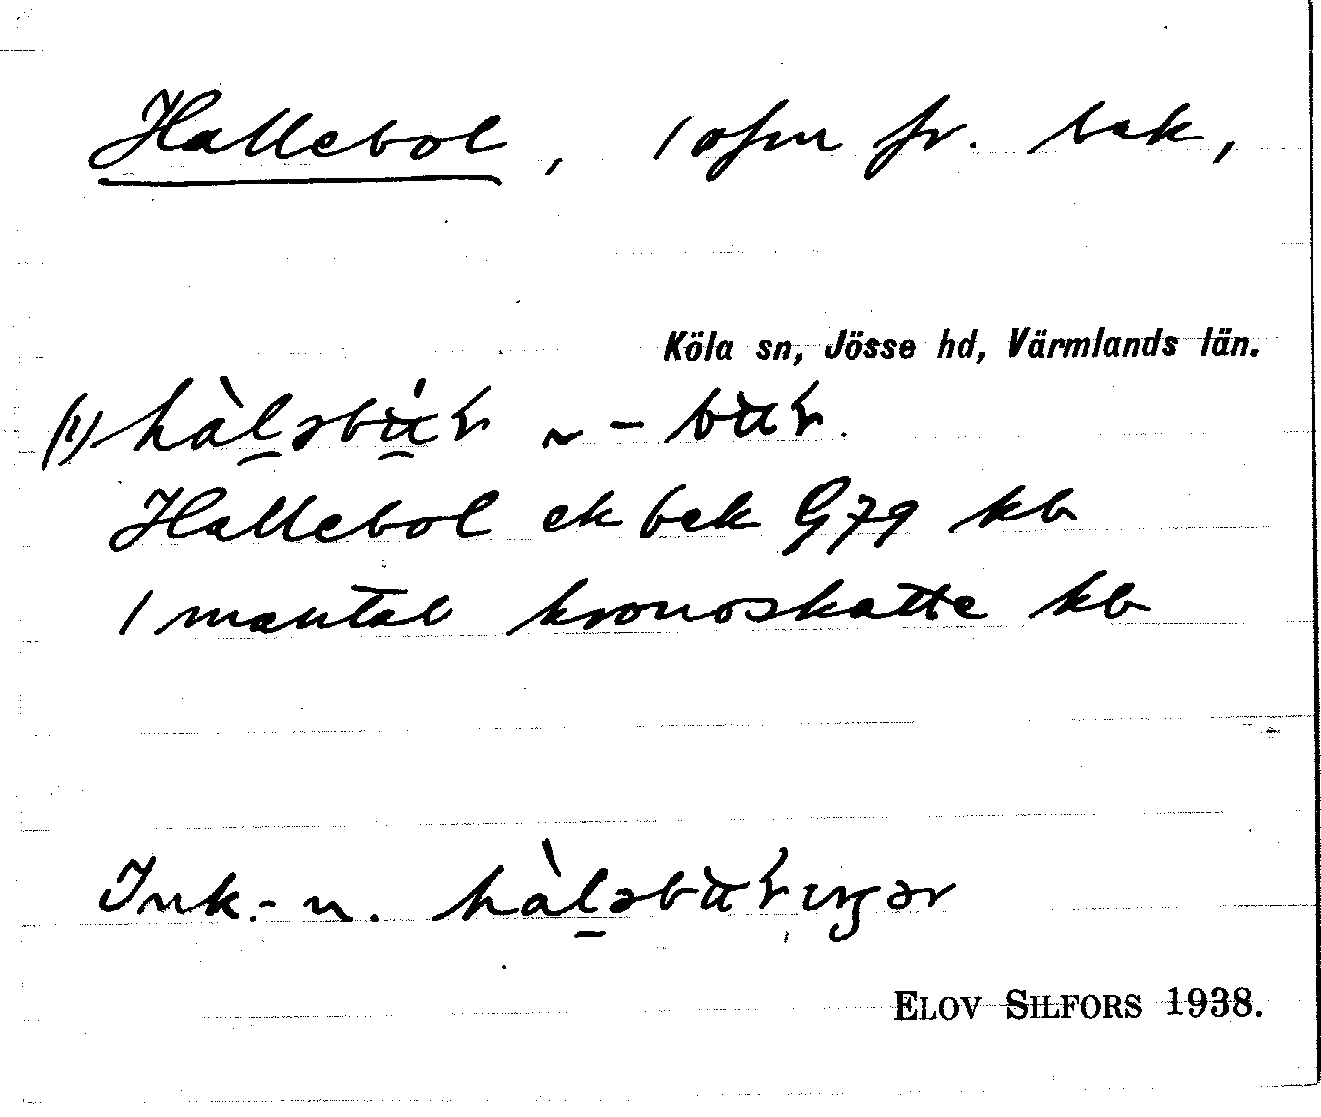 Hallebol, 1 ofm fr. bek,
Köla sn, Jösse hd, Värmlands län.
Hallebol ek bek G79 kb
1 mantal kronoskatte kb
Ink.-n.
ELOV SILFORS 1938.